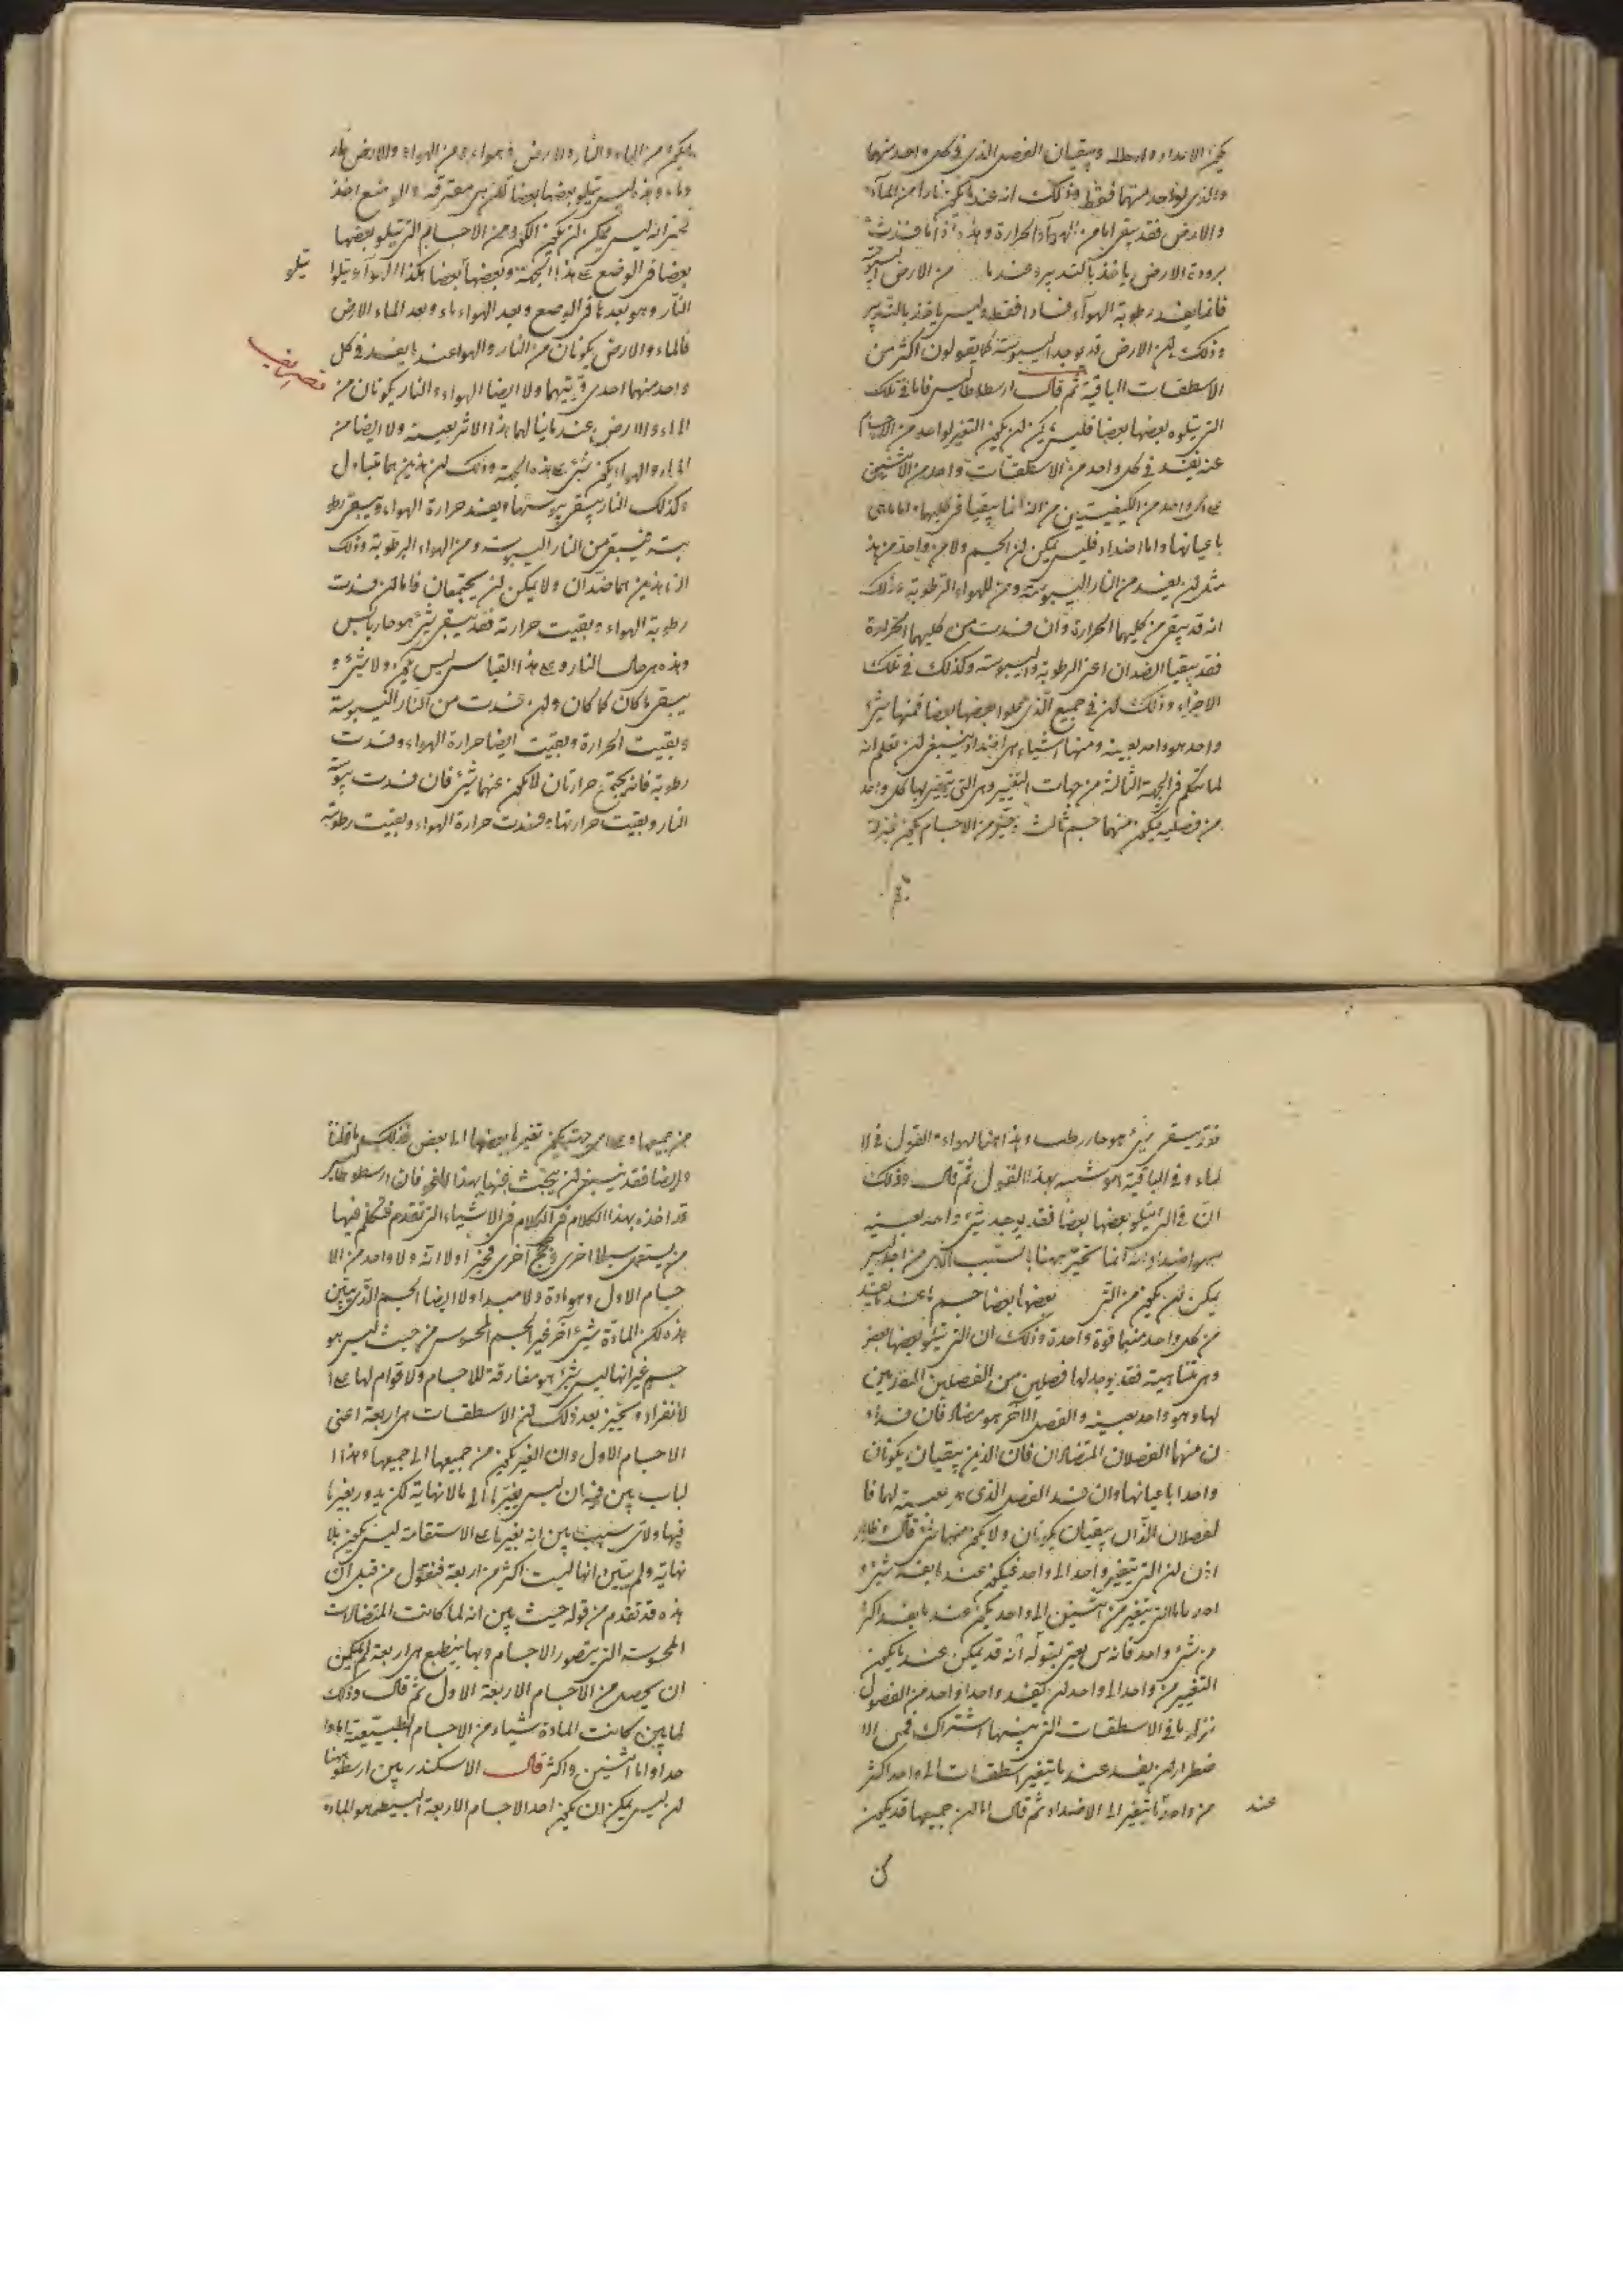 يكون الابتداء وابطاله ويبقيان الفصل الذي في كل واحد منهما
والذي لواحد منهما فقط وذلك انه عندما يكون نارا من الماء
والارض فقد يبقى اما من الهواء الحرارة وهذه اذا ما فسدت
برودة الارض ياخذ بالتدبير وعندما من الارض اليبوسة
فانما يفسد رطوبة الهواء فسادا فقط وليس ياخذ بالتدبير
وذلك لان الارض قد يوجد اليبوسة كما يقولون اكثر من
الاسطقسات الباقية ثم قال ارسطاطاليس فاما في تلك
التي يتلوه بعضها بعضا فليس يمكن ان يكون التغير لواحد من الاجسام
عنه يفسد في كل واحد من الاسطقسات واحد من الاثنين
على كل واحد من الكيفيتين من انما يبقيا في كليهما اما هي
باعيانها واما اضداد فليس يمكن ان الجسم ولا من واحد من هذه
مثل ان يفسد من النار اليبوسة ومن الهواء الرطوبة وذلك
انه قد يبقى من كليهما الحرارة وان فسدت من كليهما الحرارة
فقد يبقيا الضدان اعني الرطوبة واليبوسة وكذلك في تلك
الاخرى وذلك ان في جميع الذي يتلوا بعضها بعضا فمنها شيء
واحد هو واحد بعينه ومنها اشياء هي اضداد وينبغي ان تعلم انه
لما تكلم في الجهة الثالثة من جهات التغيير وهي التي يتغير بها كل واحد
من فصليه فيكون منهما جسم ثالث يخبر من الاجسام يكون هذا
فيكون من الماء والنار والارض والهواء ومن الهواء والارض نار
وماء وهذه ليس يتلو بعضها بعضا لكن هي مفترقة والوضع اخذ
يخبر انه ليس يمكن ان يكون الكون من الاجسام التي يتلو بعضها
بعضا في الوضع على هذه الجهة وبعضها بعضا هكذا الهواء يتلوا
يتلو
النار وهو بعدها في الوضع وبعد الهواء ماء وبعد الماء الارض
فالماء والارض يكونان من النار والهواء عندما يفسد في كل
واحد منهما احدى قوتيهما ولا ايضا الهواء والنار يكونان من
الماء والارض عندما ينالهما هذا الاثر بعينه ولا ايضا من
الماء والهواء يكون شيء على هذه الجهة وذلك ان هذين هما متبادل
وكذلك النار يبقى يبوستها ويفسد حرارة الهواء ويبقى رطو
بته فيبقى من النار اليبوسة ومن الهواء الرطوبة وذلك
ان هذين هما ضدان ولا يمكن ان يجتمعان فاما ان فسدت
رطوبة الهواء وبقيت حرارته فقد يبقى شيء هو حار يابس
وهذه هي حال النار وعلى هذا القياس ليس يكون ولا شيء و
يبقى ما كان كما كان وان فسدت من النار اليبوسة
وبقيت الحرارة وبقيت ايضا حرارة الهواء وفسدت
رطوبته فانه يجتمع حرارتان لا يكون عنهما شيء فان فسدت يبوسة
النار وبقيت حرارتها وفسدت حرارة الهواء وبقيت رطوبته
فقد يبقى شيء هو حار رطب وهذا هو الهواء والقول في الا
لماء وفي الباقية هو شبيه بهذا القول ثم قال وذلك
ان في التي يتلو بعضها بعضا فقد يوجد شيء واحد بعينه
اضداد انه انما يخبر ههنا بالسبب الذي من اجله ليس
يمكن ان يكون من التي بعضها بعضا جسم ما عندما يفسد
من كل واحد منهما قوة واحدة وذلك ان التي يتلو بعضها بعض
وهي متناهية فقد يوجد لها فصلين من الفصلين المفردين
لها وهو واحد بعينه والفصل الآخر هو مضاد فان فسد
ن منهما الفصلان المتضادان فان الذين يبقيان يكونان
واحدا باعيانها وان فسد الفصل الذي هو بعينه لهما فا
لفصلان اللذان يبقيان يكونان ولا يكون منهما شيء قال فظاهر
اذن ان التي يتغير واحد الى واحد فيكون عندما يفسد شيء و
احد فاما التي يتغير من اثنين الى واحد يكون عندما يفسد اكثر
من شيء واحد فانه يعني بقوله انه قد يمكن عندما يكون
التغيير من واحد الى واحد ان يفسد واحدا واحد من الفصول
في الاسطقسات التي بينها اشتراك فمن الا
ضطرار ان يفسد عندما يتغير اسطقسات الى واحد اكثر
من واحد ما يتغير الى الاضداد ثم قال اما ان جميعها قد يكون
عند
من جميعها وعلى اي جهة يكون تغير بعضها الى بعض فذلك ما قلنا
وايضا فقد ينبغي ان يبحث فيها بهذا النحو فان ارسطوطاليس
قد اخذ بهذا الكلام في الكلام في الاشياء التي تقدم فتكلم فيها
من يستعمل سبيلا اخرى وحجج اخرى فيخبر اولا انه ولا واحد من الا
جسام الاول وهو مادة ولا مبدا ولا ايضا الجسم الذي بين
هذه لكن المادة شيء آخر غير الجسم المحسوس من حيث ليس هو
جسم غير انها ليس شيء هو مفارقة للاجسام ولا قوام لها على ا
لانفراد ويخبر بعد ذلك ان الاسطقسات هي اربعة اعني
الاجسام الاول وان التغير يكون من جميعها الى جميعها وهذا ا
لباب يبين فيه ان ليس تغيرها الى ما لا نهاية لكن يدور تغيرها
فيها ولاي سبب يبين انه تغيرها على الاستقامة ليس يكون بلا
نهاية ولم يبين انها ليست اكثر من اربعة فنقول من قبل ان
هذه قد تقدم من قوله حيث يبين انه لما كانت المتضادات
المحسوسة التي يتصور الاجسام وبها ينطبع هي اربعة لم يمكن
ان يحصل من الاجسام الاربعة الاول ثم قال وذلك
لما يبين كانت المادة شيئا من الاجسام الطبيعية اما وا
حدا واما اثنين واكثر قال الاسكندر يبين ارسطو ههنا
ان ليس يمكن ان يكون احد الاجسام الاربعة البسيطة هو المادة